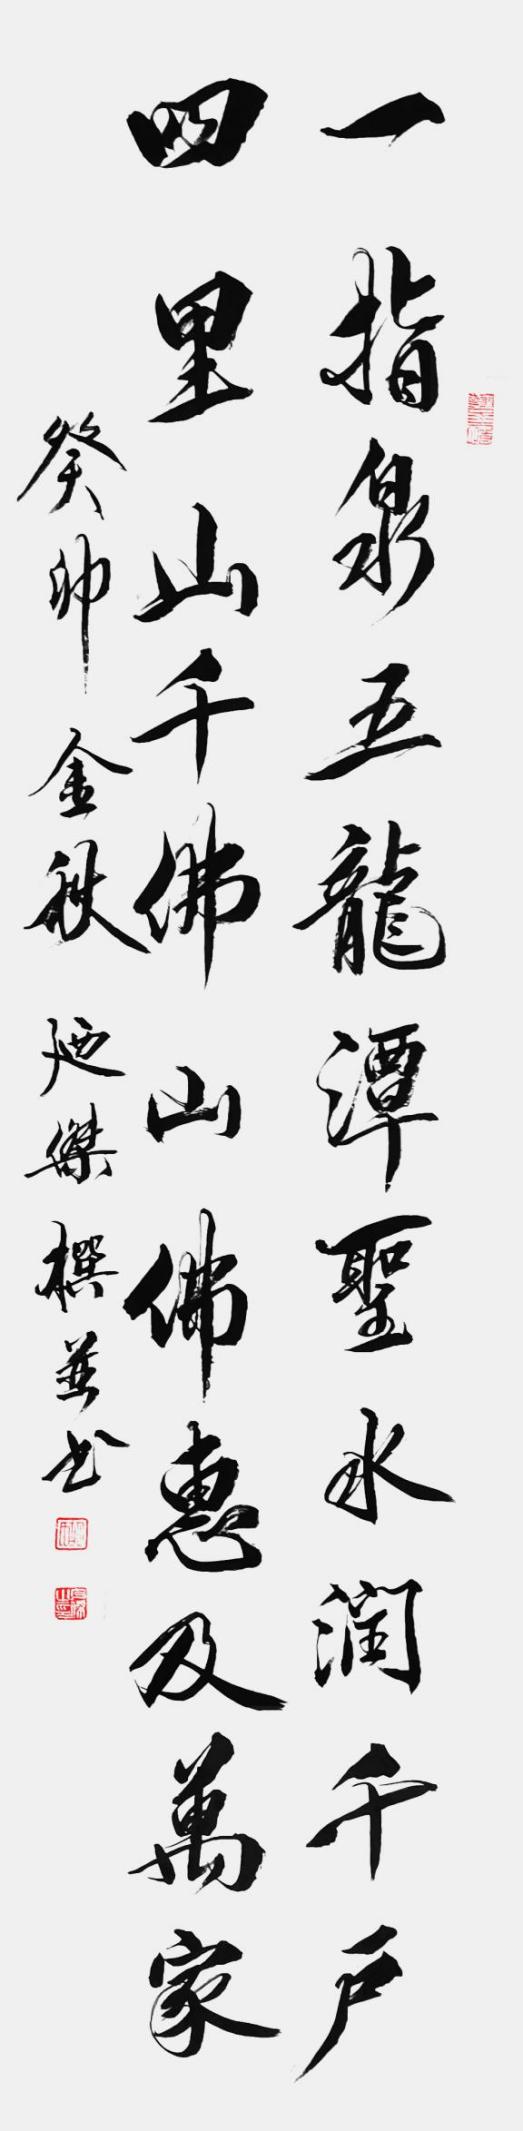 一指泉五龍潭聖水潤千戶
四里山千佛山佛惠及萬家
癸卯金秋 廼傑撰並书